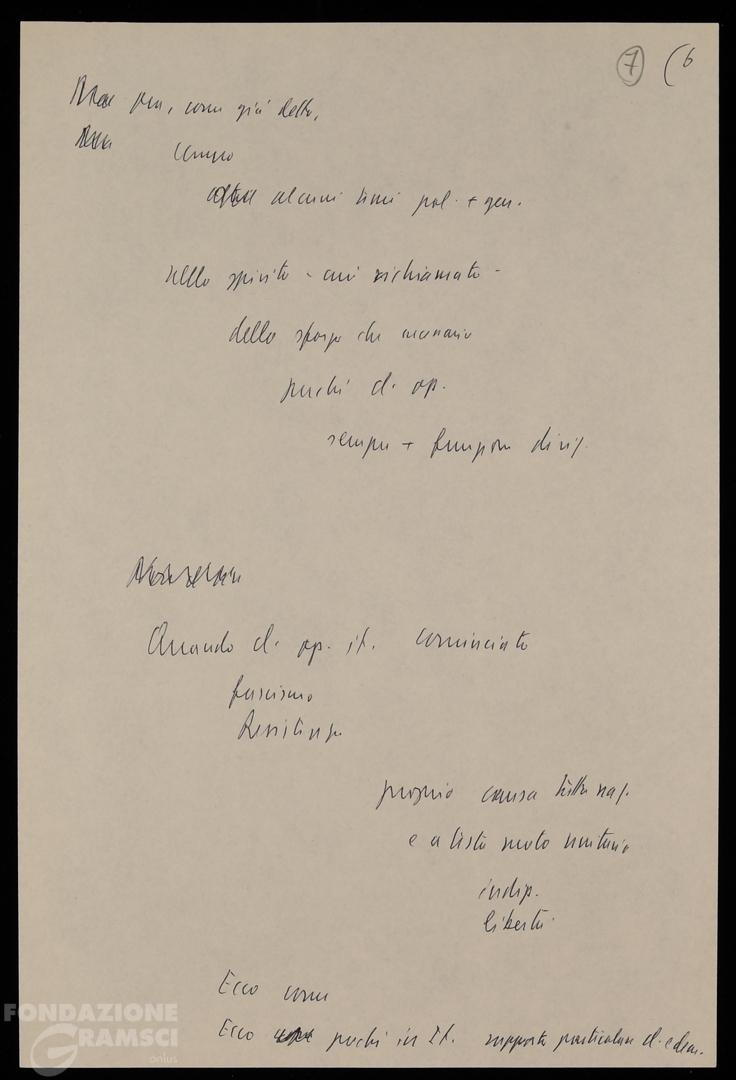 7 (6
ora, come già detto,
cerco
alcuni temi pol. + gen.
nello spirito - cui richiamato -
dello sforzo che necessario
perché cl. op.
sempre + funzione dirig.
Quando cl. op. it. cominciato
fascismo
Resistenza
proprio causa tutta naz.
e a testa moto unitario
indip.
libertà
Ecco come
Ecco perché in It. rapporto particolare cl. e dem.
FONDAZIONE
GRAMSCI
onlus